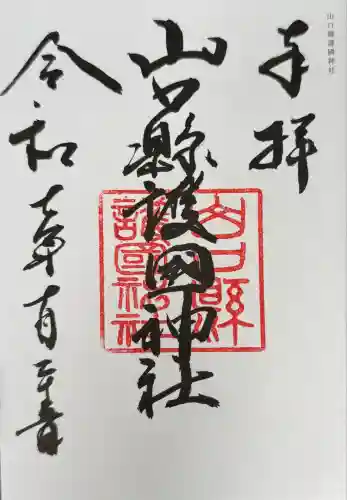 山口縣護國神社
奉拝
山口縣護國神社
山口縣
護國神社
令和